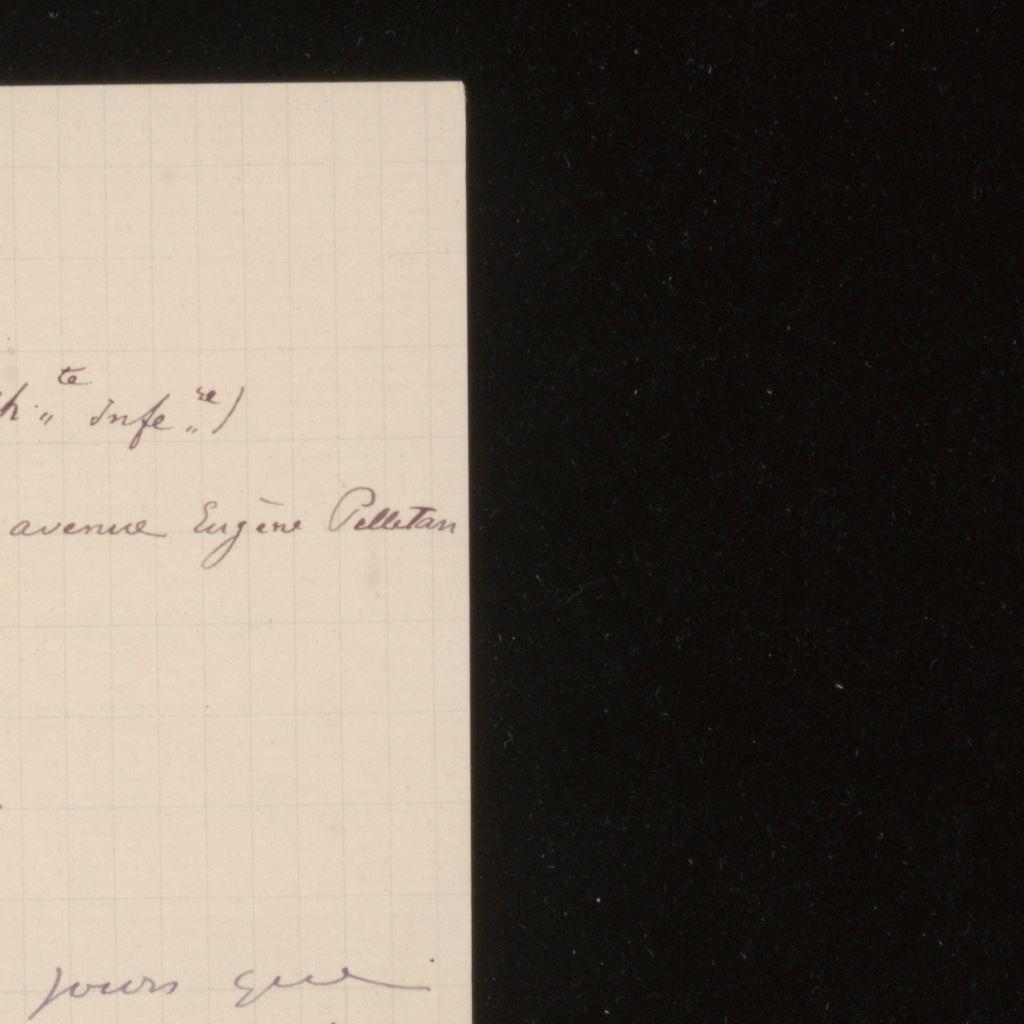 h te Infe re)
avenue Eugène Pelletan
jours que